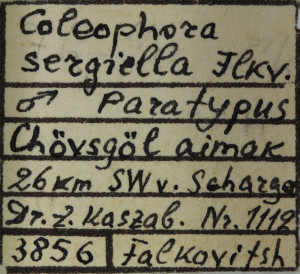 Coleophora
sergiella Flkv.
♂ Paratypus
Chövsgöl aimak
26 km SW v. Somon
Dr. Z. Kaszab. Nr. 1112
3856 Falkovitsh